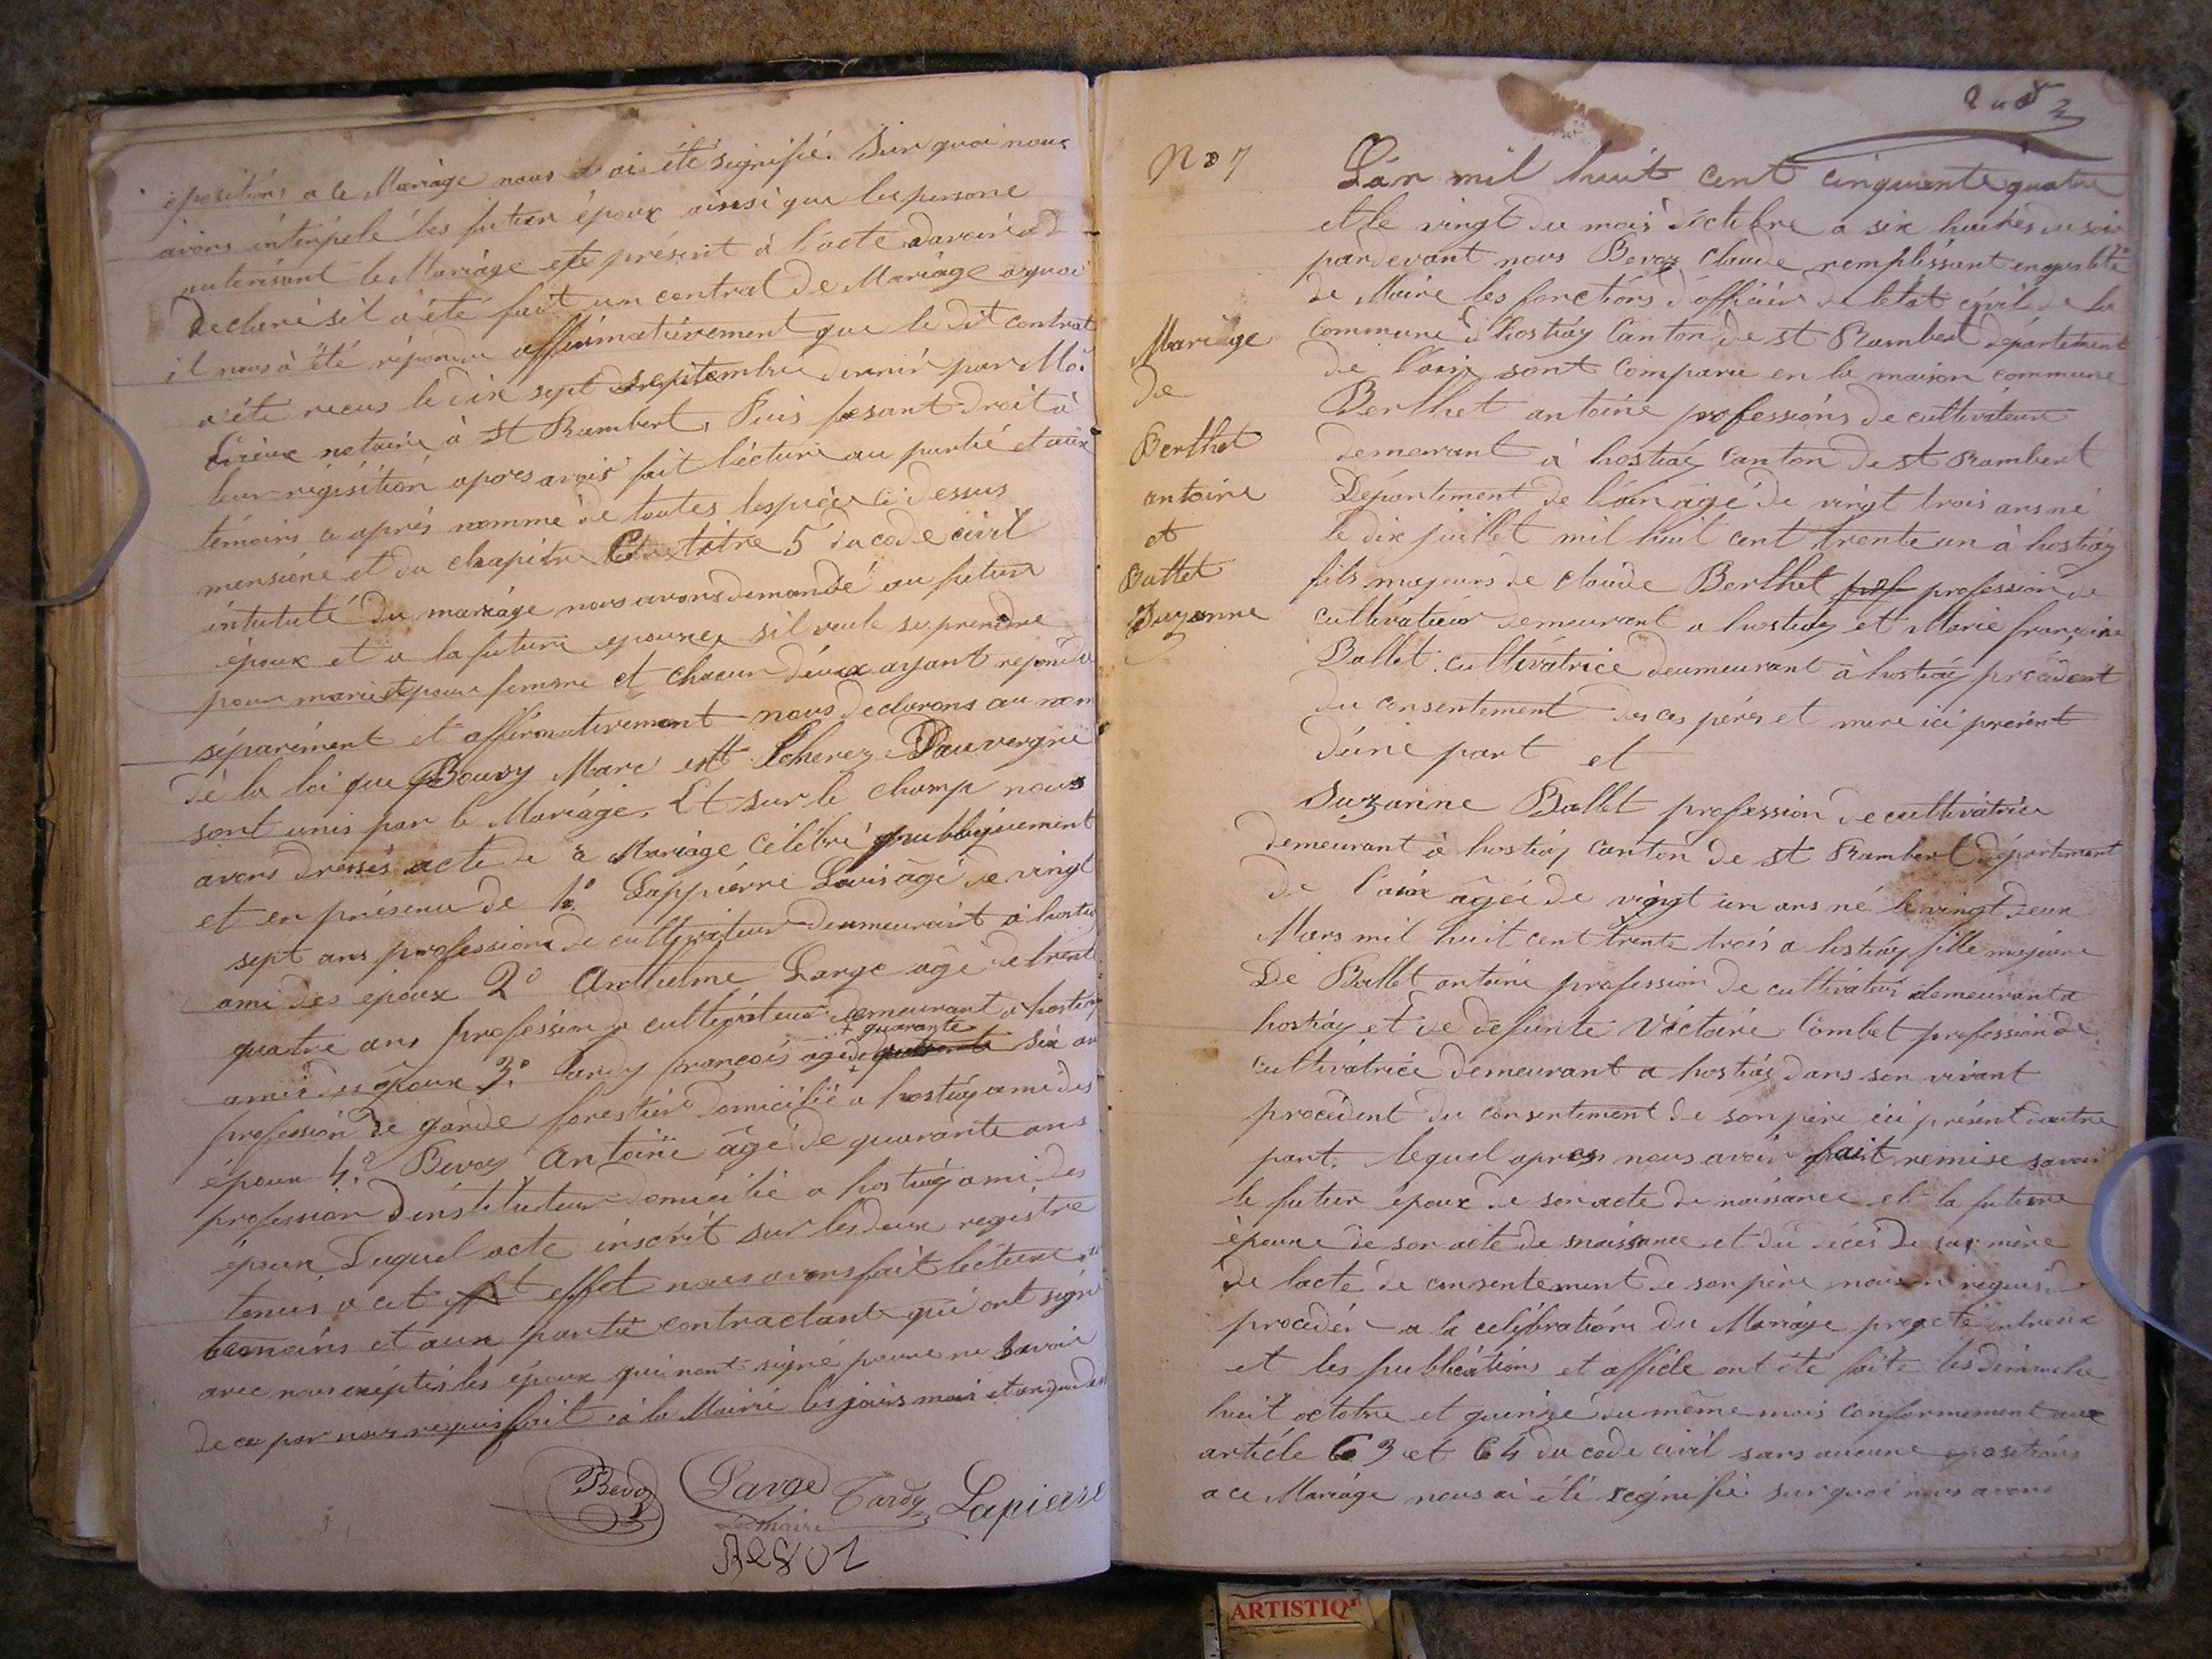 opositions a ce Mariage nous ai été signifié. Sur quoi nous
avons interpelé les futur époux ainsi que les persone
autorisant le Mariage et présent à l'acte davoir a
declaré sil a été fait un contrat de Mariage a quoi
il nous à été répondu affirmativement que le dit contrat
a été recus le dix sept septembre dernié par Me
notaire à St Rambert, Puis fesant droit à
leur réquisition apres avoir fait lecture au partié et aux
témoins ci après nommé de toutes les pièce ci dessus
mensioné et du chapitre 6 du titre 5 du code civil
intutulé du mariage nous avons demandé au futur
époux et a la future epouse, sil veule se prendre
pour mari et pour femme et chacun d'eux ayant repondu
séparément et affirmativement nous declarons au nom
de la loi que Bouvy Marc et Dauvergne
sont unis par le Mariage. Et sur le champ nous
avons dressés acte de ce Mariage célébré publiquement
et en présence de 1° Lappiérre Louis âgé de vingt
sept ans profession de cultivateur demeurant à hostia
ami des époux 2° Anthelme Large âgé de trente
quatre ans profession de cultivateur demeurant a hostiay
+ quarante
ami des époux 3° Tardy françois âgé de six an
profession de garde forestier domicilié a hostiay ami des
époux 4° Bevoz Antoine âgé de quarante ans
profession d'instituteur domicilié a hostiay ami des
époux Duquel acte inscrit sur les deux registre
tenus a cet effet nous avons fait lecture aux
temoins et aux partie contractante qui ont signé
avec nous exéptés les époux qui nont signé pour ne savoir
de ce par nous requis fait à la Mairie les jours mois et an que dess
Bevoz Large Tardy Lapierre
Le maire
Bevoz
No 7
L'an mil huit cent cinquante quatre
et le vingt du mois d'octobre a six heures du soir
pardevant nous Bevoz Claude remplissant en qualité
de Maire les fonctions d'officier de letat civil de la
Commune d'hostiay Canton de st Rambert département
de l'ain sont comparu en la maison commune
Berthet antoine professions de cultivateur
demeurant à hostiay Canton de st Rambert
Département de l'ain âgé de vingt trois ans né
le dix juillet mil huit cent trente un à hostiay
fils majeurs de Claude Berthet prof profession de
cultivateur demeurant a hostiay et Marie françoise
Ballet cultivatrice deumeurant à hostiay procédent
du consentement des ces péres et mere ici present
d'une part et
Suzanne Ballet profession de cultivatrice
demeurant à hostiay Canton de st Rambert département
de l'ain âgée de vingt un ans né le vingt deux
Mars mil huit cent trente trois a hostiay fille majeure
De Ballet antoine profession de cultivateur demeurant a
hostiay et de defunte Victoire Combet profession de
cultivatrice demeurant a hostiay dans son vivant
procédent du consentement de son père ici présent d'autre
part, lequel apres nous avoir fait remise savoir
le futur époux de son acte de naissance et la future
épouse de son acte de naissance et du décés de sa mère
de lacte de consentement de son père nous on requis de
procéder a la célébration du Mariage projeté entreux
et les publications et affiche ont été faite les dimanche
huit octobre et quinze du même mois conformement aux
article 63 et 64 du code civil sans aucune oposition
a ce Mariage nous ai été signifié sur quoi nous avons
Mariage
de
Berthet
antoine
et
Ballet
Suzanne
ARTISTIQ